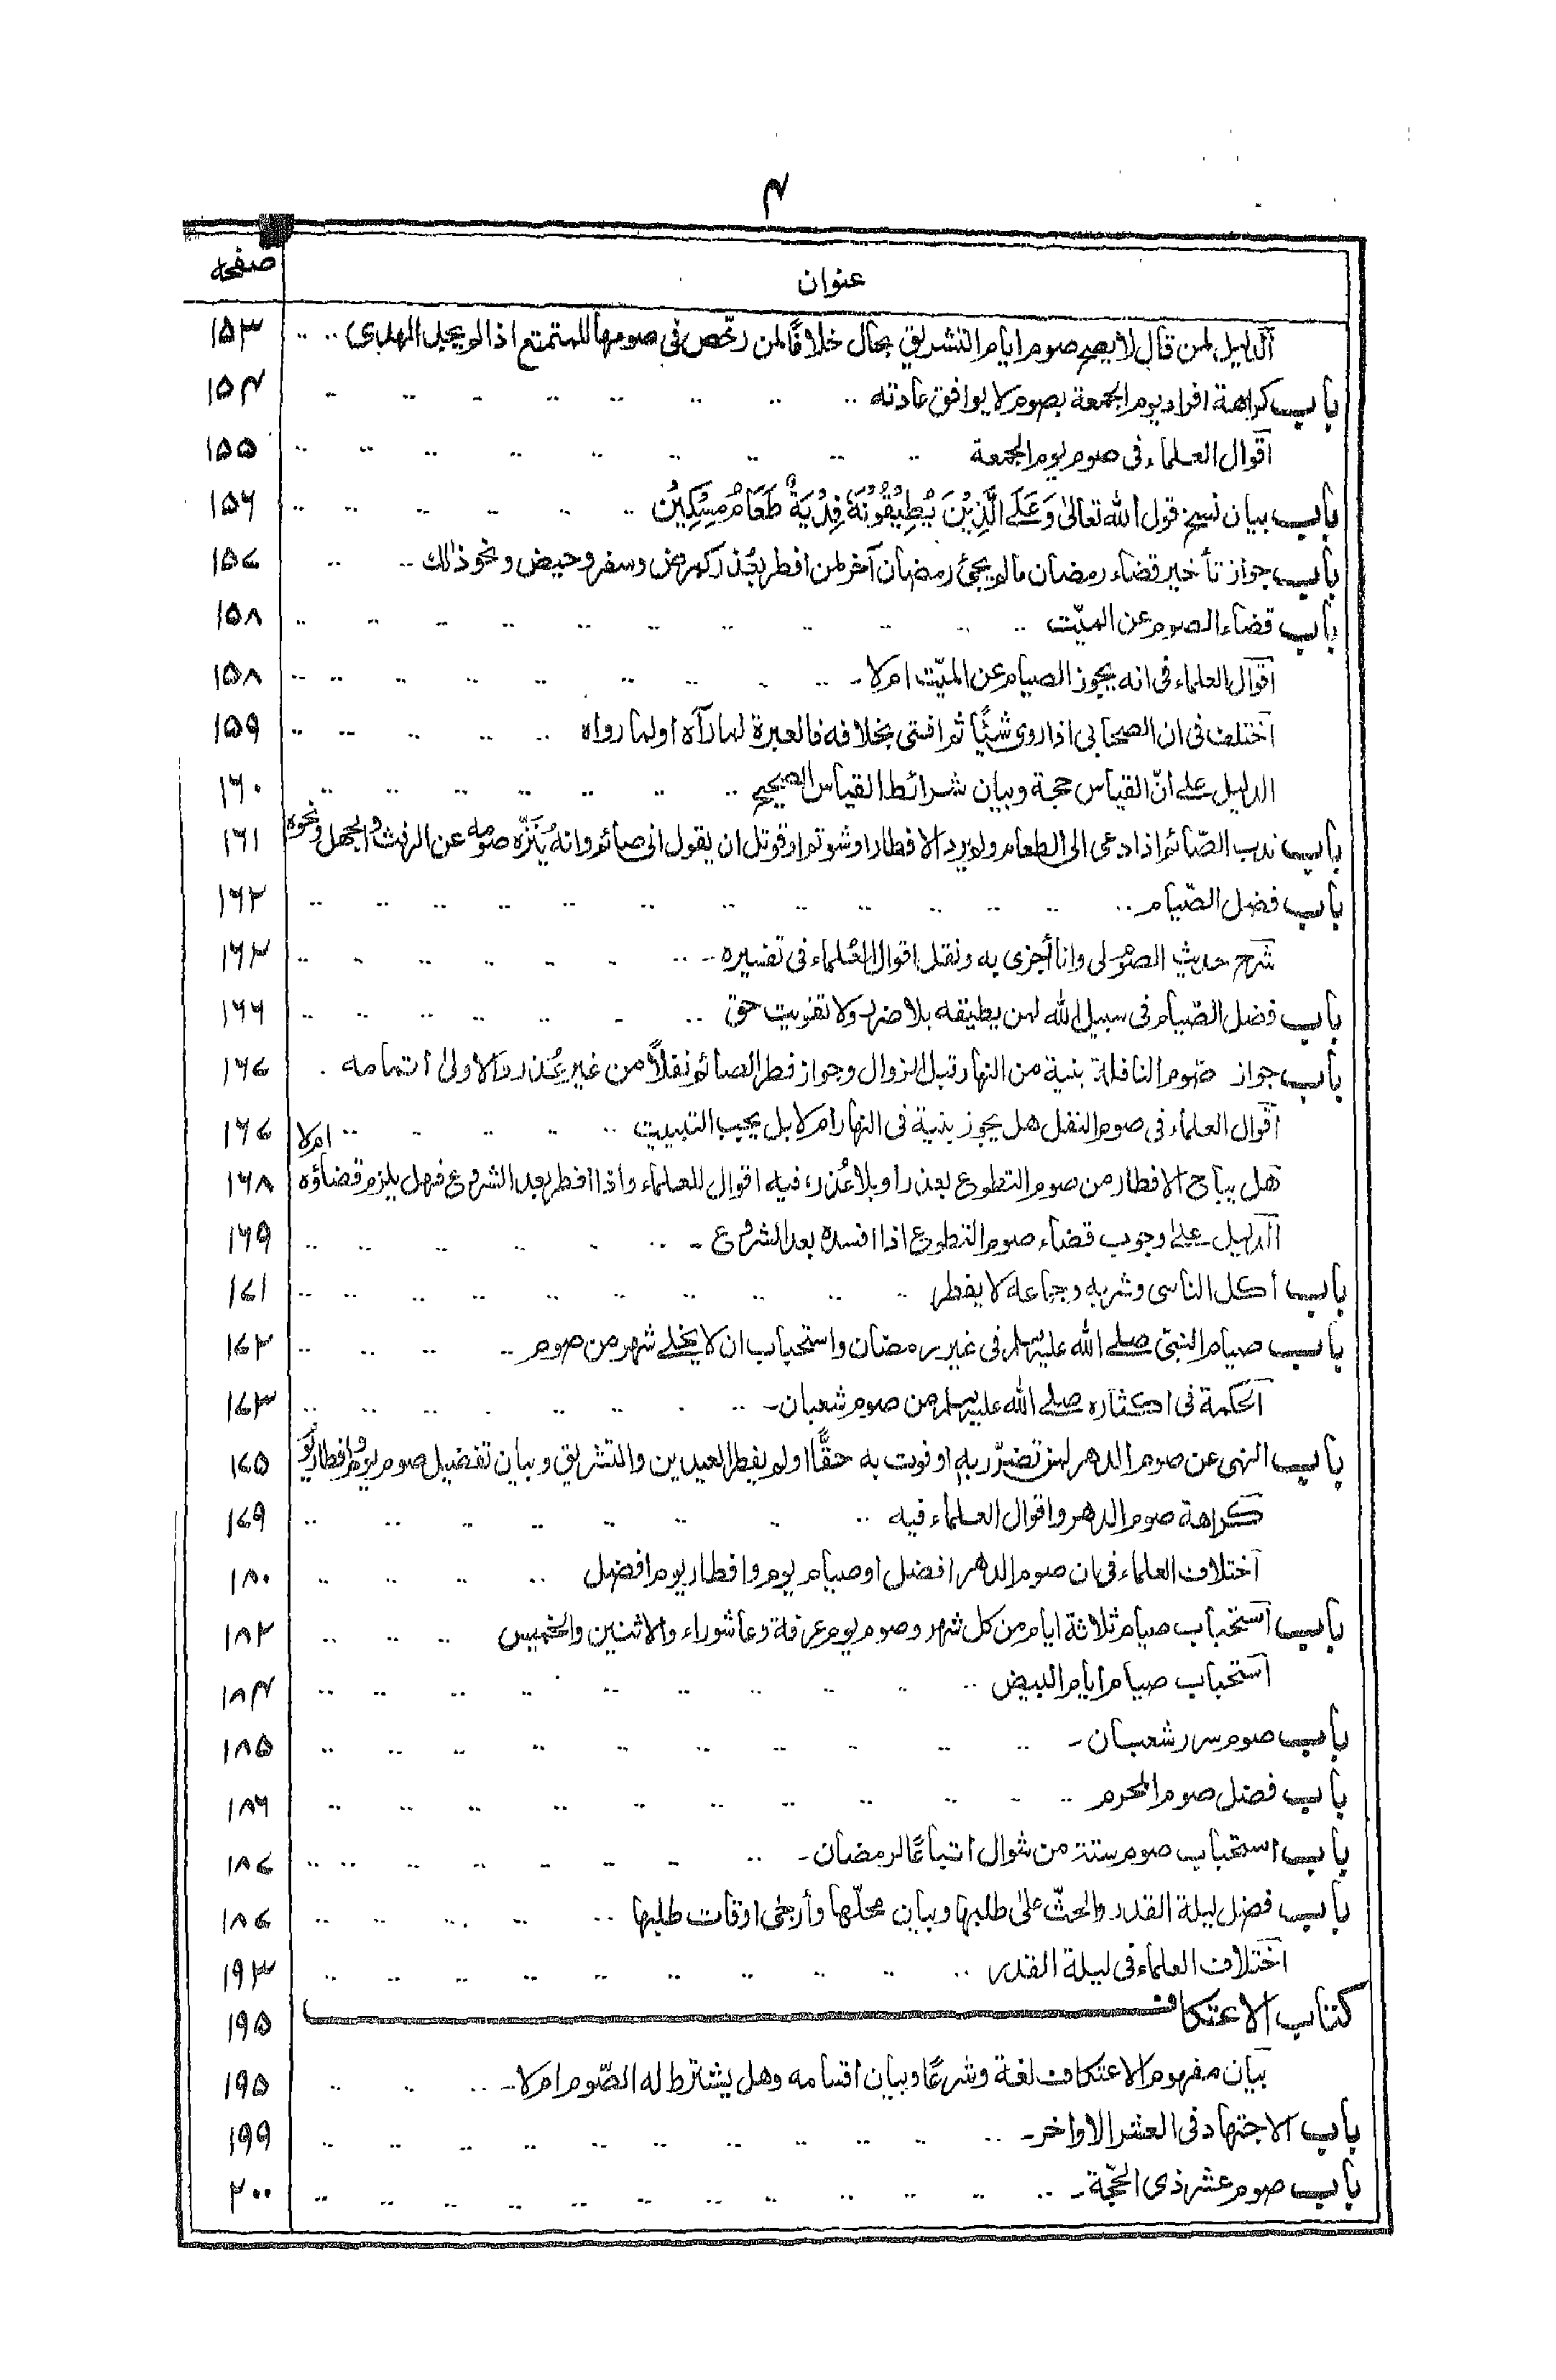 ۴
عنوان صفحه
الدليل لمن قال لا يصح صوم ايام التشريق بحال خلافًا لمن رخّص فى صومها للمتمتع اذا لم يجد الهدى ۱۵۳
باب كراهة افراد يوم الجمعة بصوم لا يوافق عادته ۱۵۴
اقوال العلماء فى صوم يوم الجمعة ۱۵۵
باب بيان نسخ قول الله تعالىٰ وَعَلَى الَّذِيْنَ يُطِيْقُوْنَهٗ فِدْيَةٌ طَعَامُ مِسْكِيْنٍ ۱۵۶
باب جواز تأخير قضاء رمضان مالم يجئ رمضان آخر لمن افطر بعُذر كمرض وسفر وحيض ونحو ذالك ۱۵۷
باب قضاء الصوم عن الميّت ۱۵۸
اقوال العلماء فى انه يجوز الصيام عن الميّت ام لا ۱۵۸
اختلف فى ان الصحابى اذا روى شيئًا ثم افتى بخلافه فالعبرة لما رآه او لما رواه ۱۵۹
الدليل على انّ القياس حجة وبيان شرائط القياس الصحيح ۱۶۰
باب ندب الصّائم اذا دعى الى الطعام ولم يرد الافطار او شوتم او قوتل ان يقول انى صائم وانه يُنَزّه صومه عن الرفث والجهل ونحوه ۱۶۱
باب فضل الصّيام ۱۶۲
شرح حديث الصّوم لى وانا أجزى به ونقل اقوال العُلماء فى تفسيره ۱۶۲
باب فضل الصّيام فى سبيل الله لمن يطيقه بلا ضرر ولا تفويت حق ۱۶۶
باب جواز صوم النافلة بنية من النهار قبل الزوال وجواز فطر الصائم نفلاً من غير عُذر والاولىٰ اتمامه ۱۶۷
اقوال العلماء فى صوم النفل هل يجوز بنية فى النهار ام لا بل يجب التبييت ۱۶۷
هل يباح الافطار من صوم التطوع بعذر او بلا عُذر، فيه اقوال للعلماء واذا افطر بعد الشروع فهل يلزم قضاؤه ام لا ۱۶۸
الدليل على وجوب قضاء صوم التطوع اذا افسده بعد الشروع ۱۶۹
باب أكل الناسى وشربه وجماعه لا يفطر ۱۷۱
باب صيام النبىّ صلى الله عليه وسلم فى غير رمضان واستحباب ان لا يخلى شهر من صوم ۱۷۲
الحكمة فى اكثاره صلى الله عليه وسلم من صوم شعبان ۱۷۳
باب النهى عن صوم الدهر لمن تضرّر به او فوت به حقًّا او لم يفطر العيدين والتشريق وبيان تفضيل صوم يوم وافطار يوم ۱۷۵
كراهة صوم الدهر واقوال العلماء فيه ۱۷۹
اختلاف العلماء فى ان صوم الدهر افضل او صيام يوم وافطار يوم افضل ۱۸۰
باب استحباب صيام ثلاثة ايام من كل شهر وصوم يوم عرفة وعاشوراء والاثنين والخميس ۱۸۲
استحباب صيام ايام البيض ۱۸۴
باب صوم سرر شعبان ۱۸۵
باب فضل صوم المحرم ۱۸۶
باب استحباب صوم ستة من شوال اتباعًا لرمضان ۱۸۷
باب فضل ليلة القدر والحثّ على طلبها وبيان محلّها وأرجىٰ اوقات طلبها ۱۸۷
اختلاف العلماء فى ليلة القدر ۱۹۳
كتاب الاعتكاف ۱۹۵
بيان مفهوم الاعتكاف لغة وشرعًا وبيان اقسامه وهل يشترط له الصّوم ام لا ۱۹۵
باب الاجتهاد فى العشر الاواخر ۱۹۹
باب صوم عشر ذى الحجّة ۲۰۰